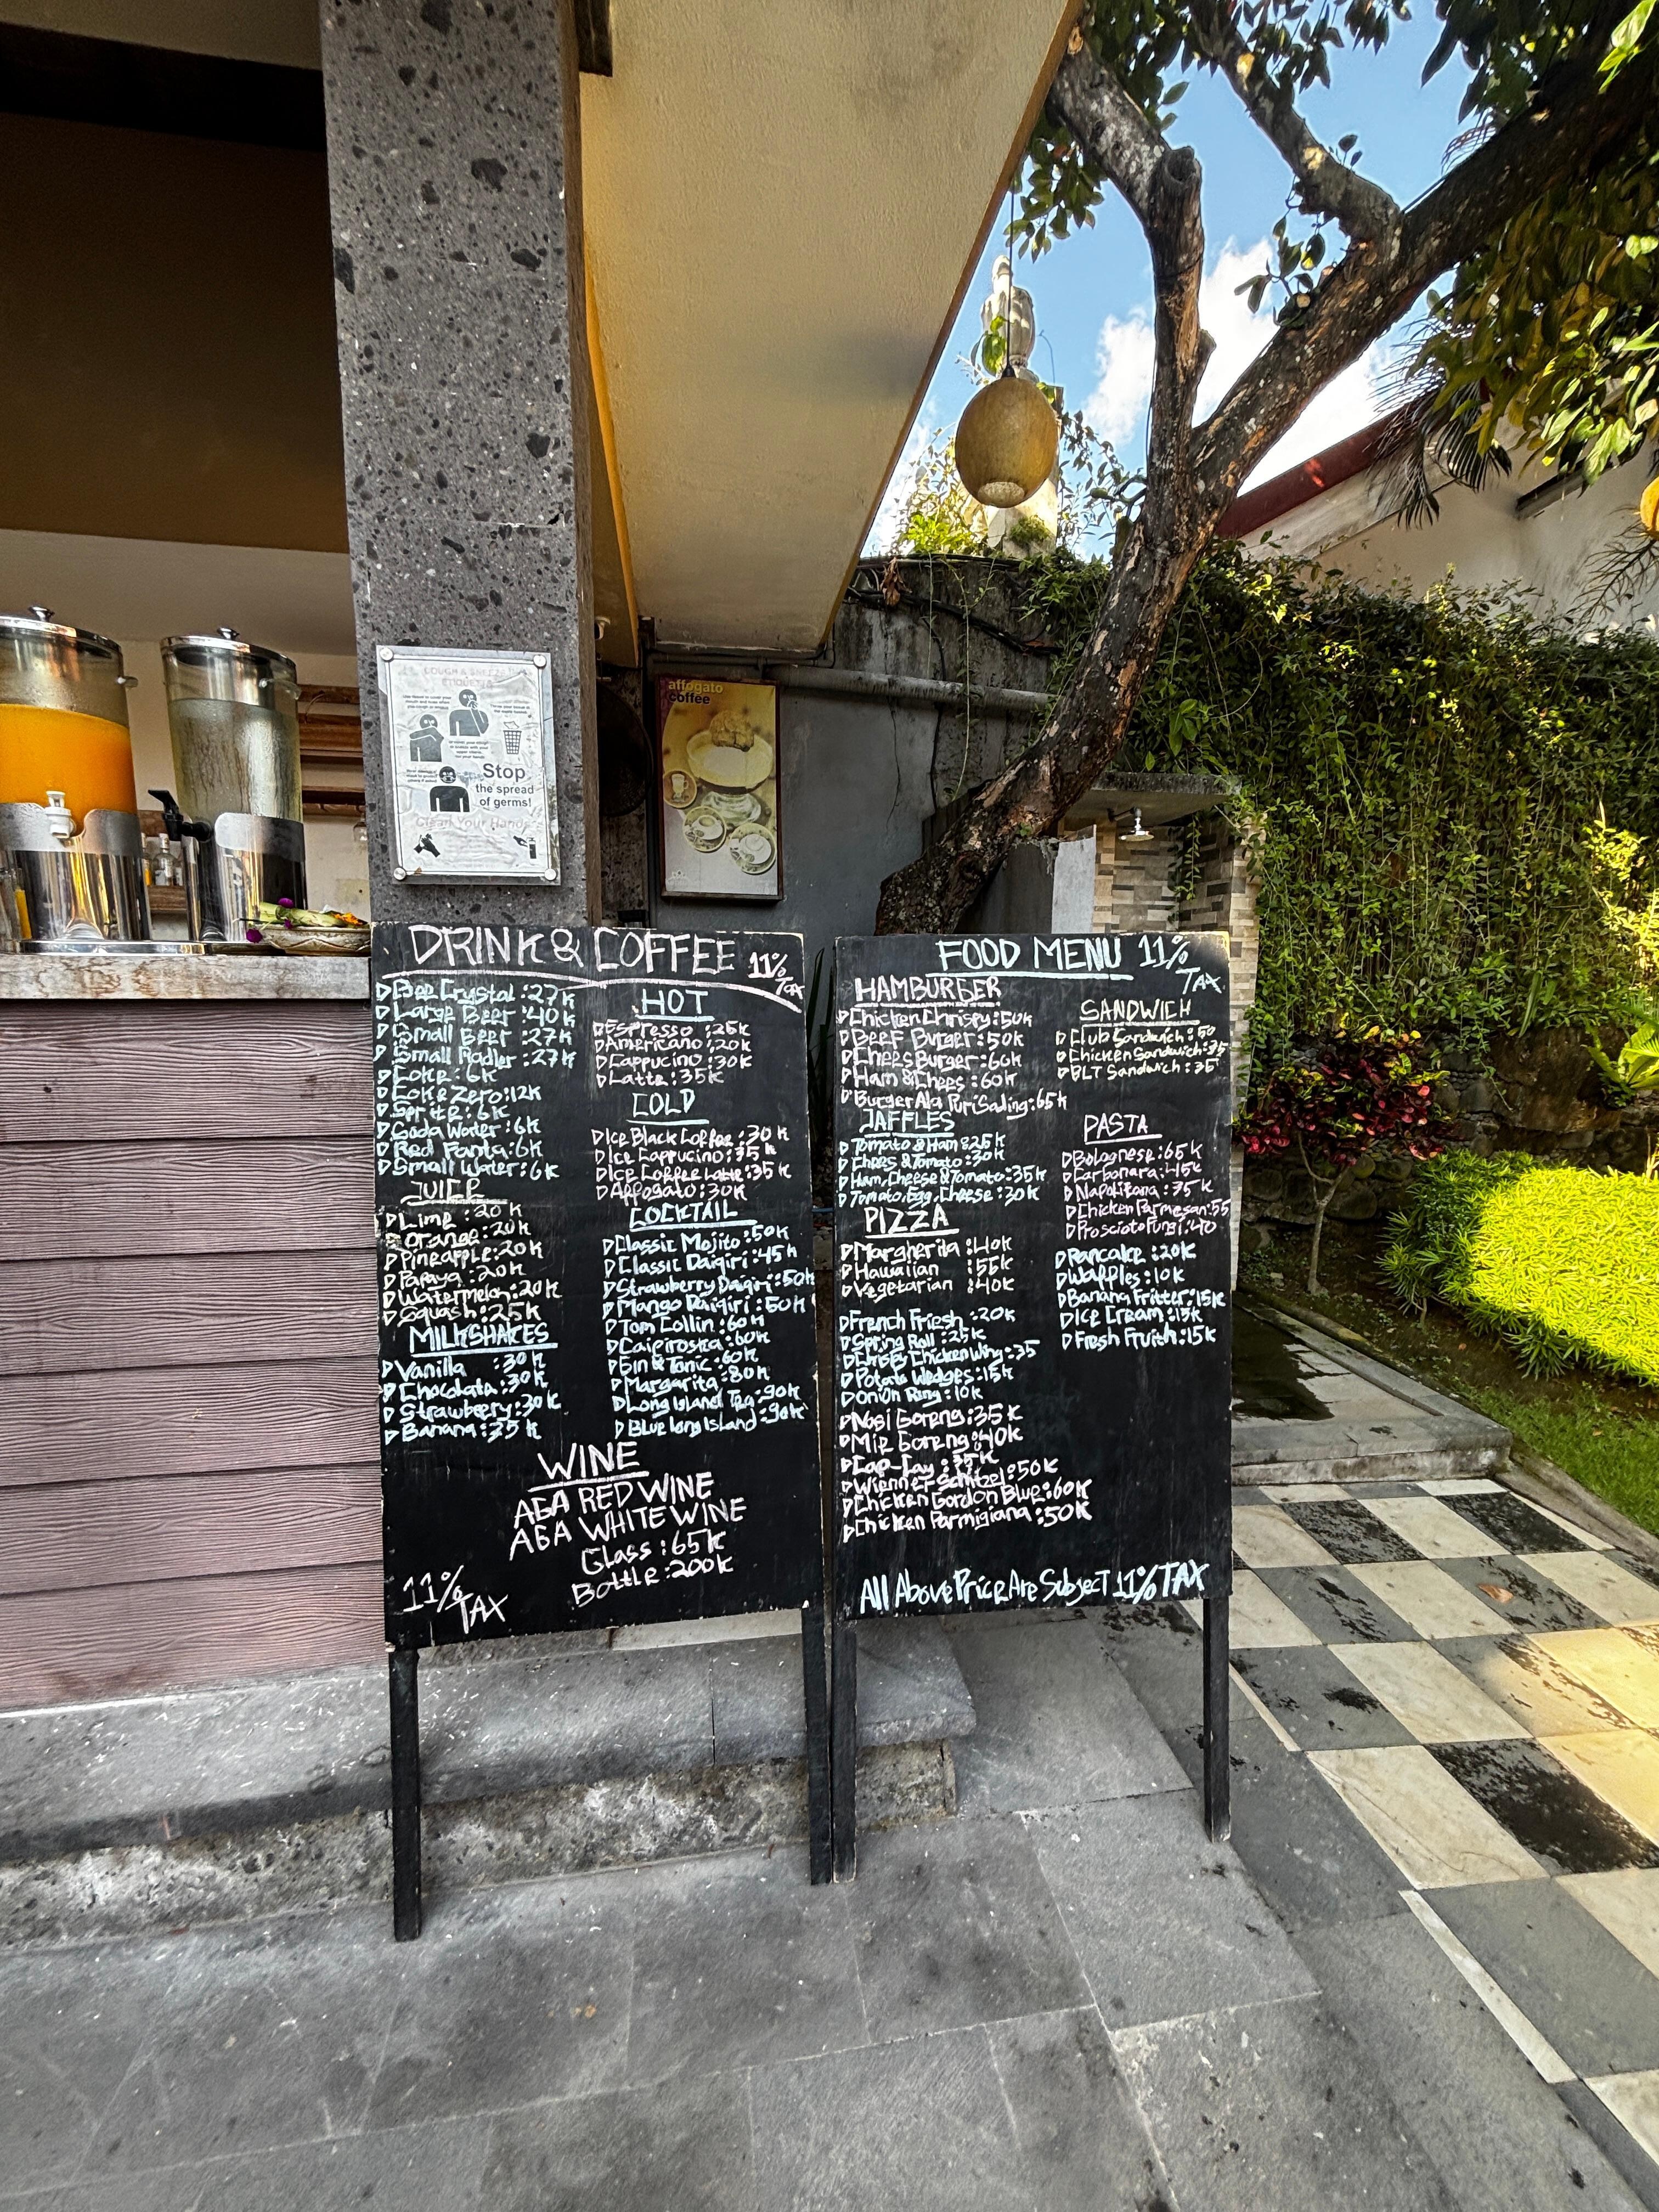 COUGH & SNEEZE
ETIQUETTE
Stop
the spread
of germs!
Clean Your Hands
affogato
coffee
DRINK & COFFEE 11%
TAX
Large Beer :40K
Small Beer :27K
Small Radler :27K
Coke :6K
Coke Zero:12K
Sprite :6K
Soda Water :6K
Red Fanta:6K
Small Water :6K
JUICE
Lime :20K
Orange :20K
Pineapple:20K
Papaya :20K
Watermelon:20K
Squash :25K
MILKSHAKES
Vanilla :30K
Chocolata :30K
Strawbeery:30K
Banana :35K
HOT
Espresso :25K
Americano :20K
Cappucino :30K
Latte :35K
COLD
Ice Black Coffee :30K
Ice Cappucino :35K
Ice Coffee Latte :35K
Affogato :30K
COCKTAIL
Classic Mojito :50K
Classic Daigiri :45K
Strawberry Daigiri :50K
Mango Daigiri :50K
Tom Collin :60K
Caipiroska :60K
Gin & Tonic :60K
Margarita :80K
Long Island Tea :90K
Blue Long Island :90K
WINE
AGA RED WINE
AGA WHITE WINE
Glass :65K
Bottle :200K
11%
TAX
FOOD MENU 11%
TAX
HAMBURGER
Chicken Chrispy :50K
Beef Burger :50K
Chees Burger :60K
Ham & Chees :60K
Burger Ala Puri Saling :65K
JAFFLES
Tomato & Ham :25K
Chees & Tomato :30K
Ham, Cheese & Tomato :35K
Tomato, Egg, Cheese :30K
PIZZA
Margherita :40K
Hawaiian :55K
Vegetarian :40K
French Friesh :20K
Spring Roll :25K
Chrispy Chicken Wing :35
Potato Wedges :15K
Onion Ring :10K
Nasi Goreng :35K
Mie Goreng :40K
Cap-Cay :35K
Wienner Schitzel :50K
Chicken Gordon Blue :60K
Chicken Parmigiana :50K
SANDWICH
Club Sandwich :50
Chicken Sandwich :35
BLT Sandwich :35
PASTA
Bolognese :65K
Carbonara :45K
Napolitana :35K
Chicken Parmesan :55
Proscioto Fungi :40
Pancake :20K
Waffles :10K
Banana Fritter :15K
Ice Cream :15K
Fresh Fruith :15K
All Above Price Are Subject 11% TAX